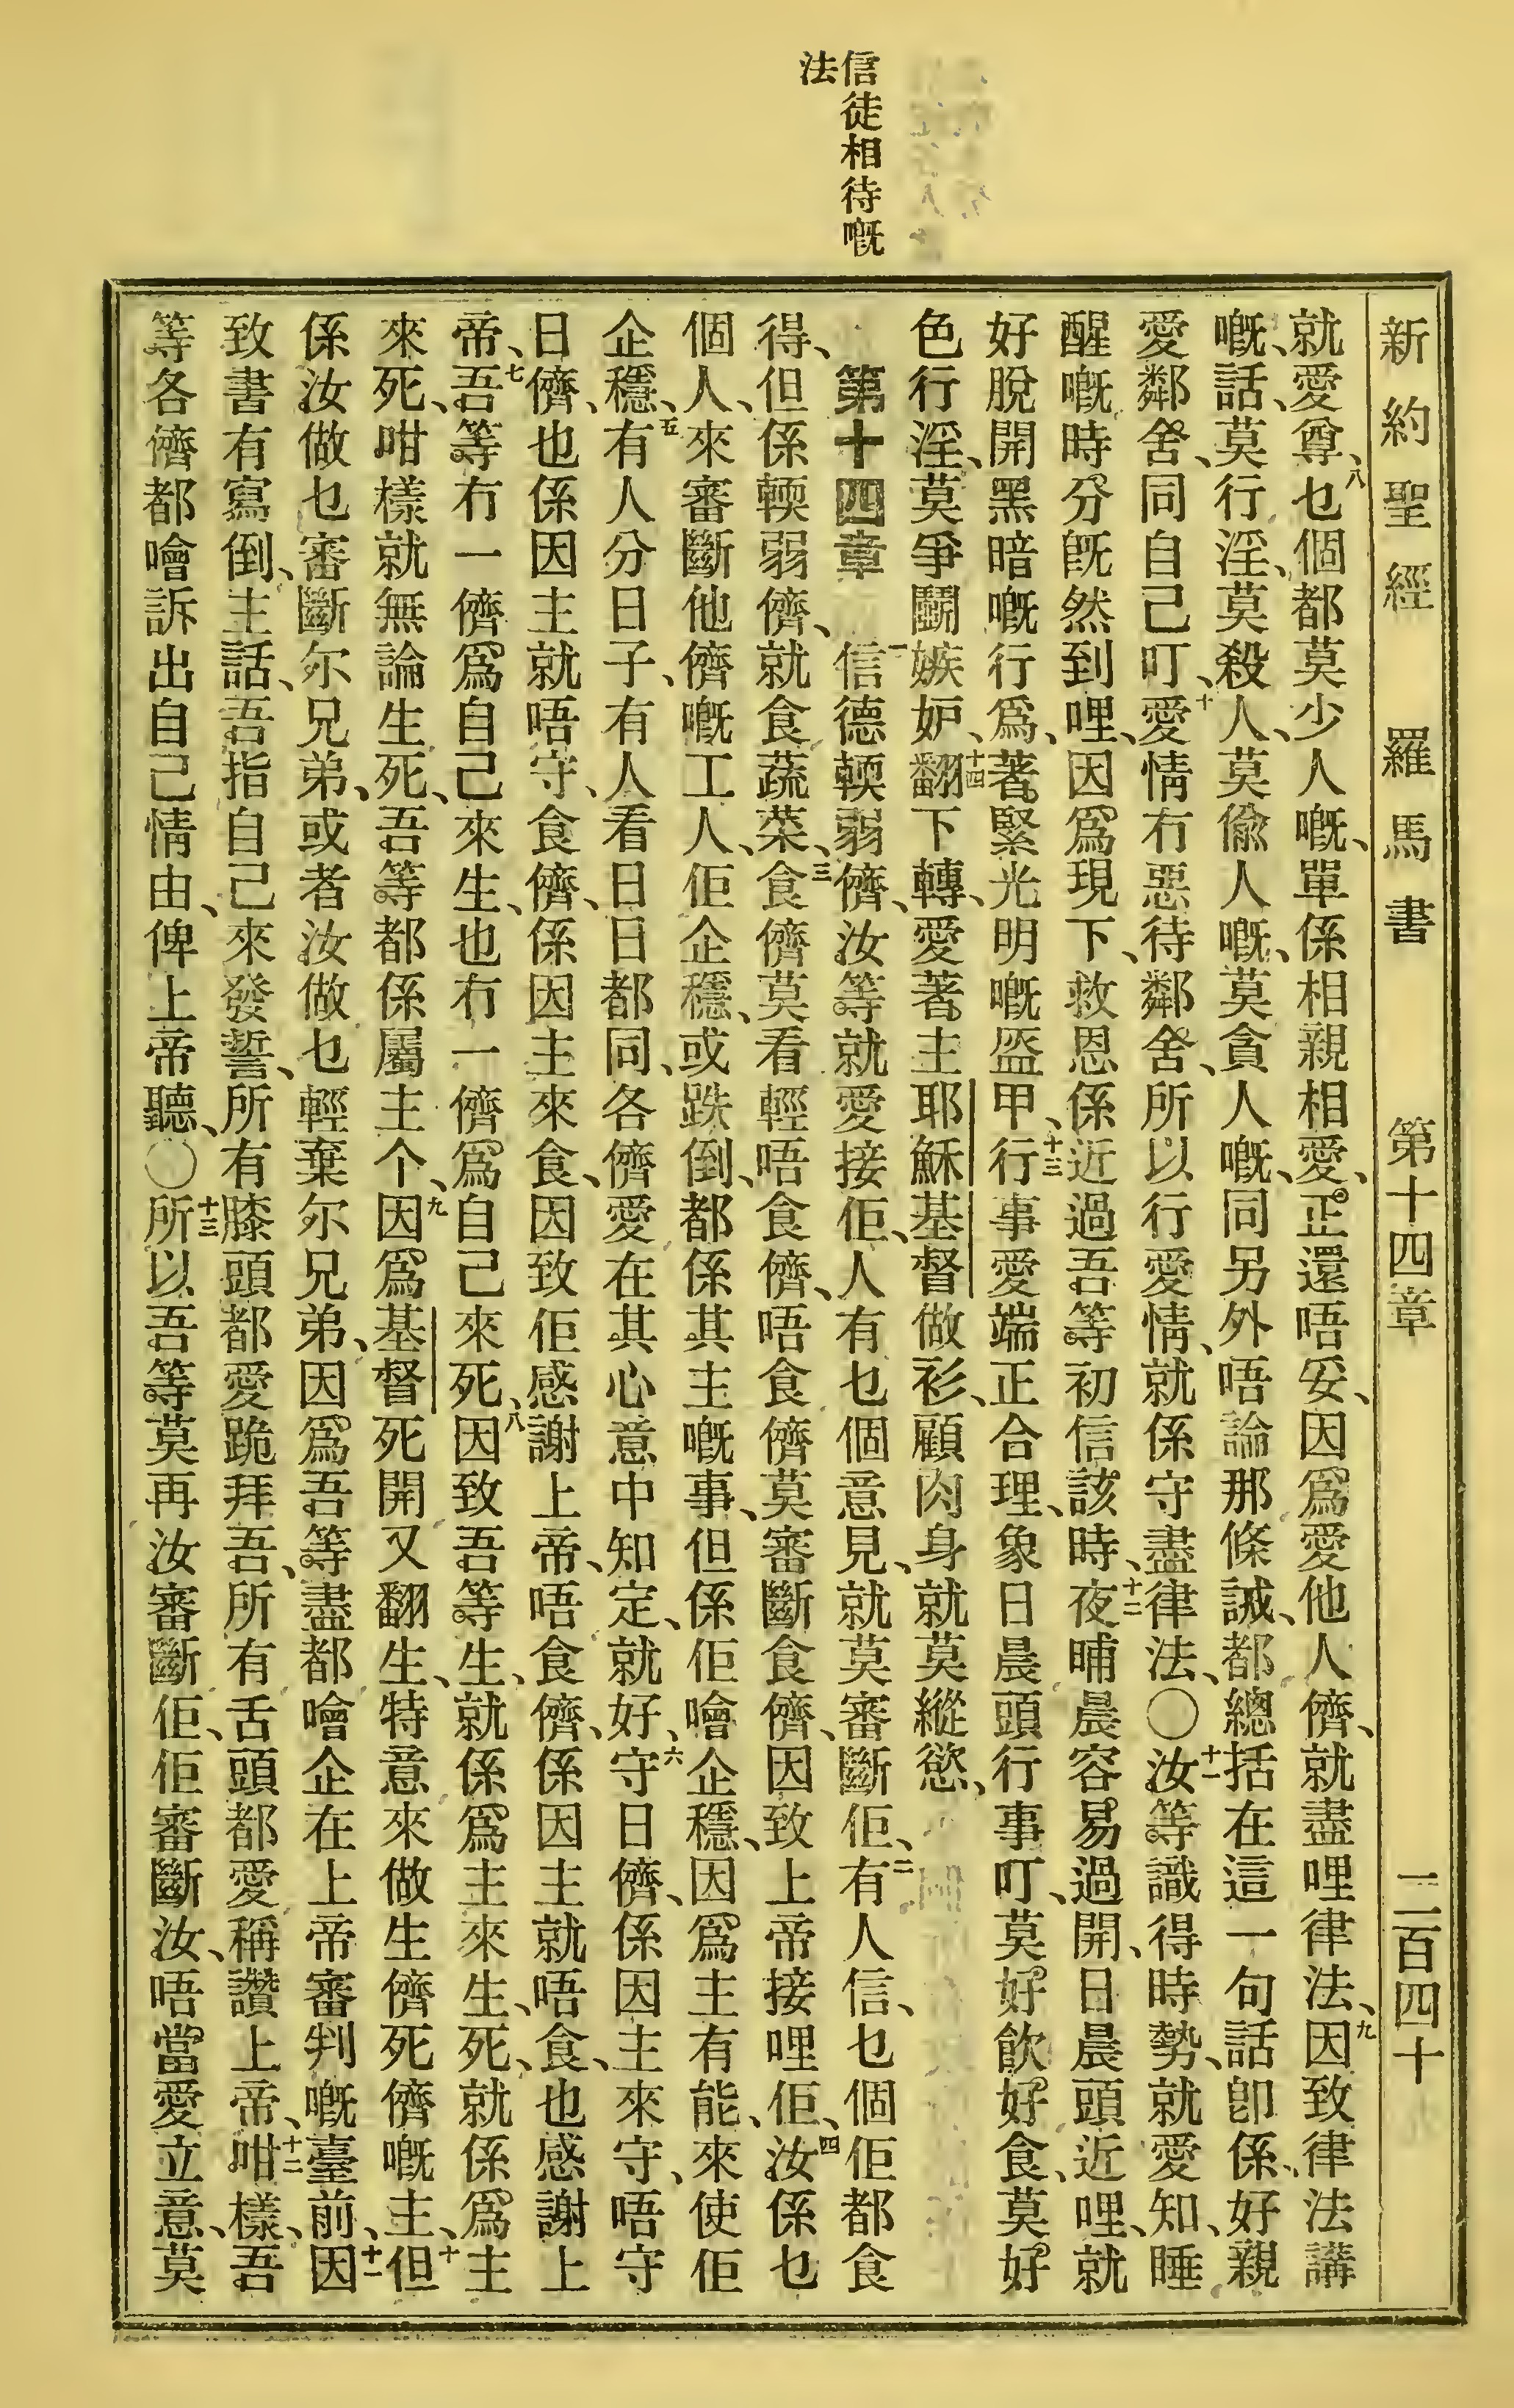 信徒相待嘅
法
新約聖經　羅馬書　第十四章　二百四十
就愛尊、八乜個都莫少人嘅、單係相親相愛、正還唔妥、因爲愛他人儕、就盡哩律法、九因致律法講
嘅、話、莫行淫、莫殺人、莫偷人嘅、莫貪人嘅、同另外唔論那條誡、都總括在這一句話卽係、好親
愛鄰舍、同自己叮、十愛情冇惡待鄰舍、所以行愛情、就係守盡律法、〇十一汝等識得時勢、就愛知、睡
醒嘅時分旣然到哩、因爲現下、救恩係近過吾等初信該時、十二夜晡晨容易過開、日晨頭近哩、就
好脫開黑暗嘅行爲、著緊光明嘅盔甲、十三行事愛端正合理、象日晨頭行事叮、莫好飮好食、莫好
色行淫、莫爭鬪嫉妒、十四翻下轉、愛著主耶穌基督做衫、顧肉身就莫縱慾、
第十四章　一信德輭弱儕、汝等就愛接佢、人有乜個意見、就莫審斷佢、二有人信、乜個佢都食
得、但係輭弱儕、就食蔬菜、三食儕莫看輕唔食儕、唔食儕莫審斷食儕、因致上帝接哩佢、四汝係乜
個人、來審斷他儕嘅工人、佢企穩、或跌倒、都係其主嘅事、但係佢噲企穩、因爲主有能、來使佢
企穩、五有人分日子、有人看日日都同、各儕愛在其心意中知定、就好、六守日儕、係因主來守、唔守
日儕、也係因主就唔守、食儕、係因主來食、因致佢感謝上帝、唔食儕、係因主就唔食、也感謝上
帝、七吾等冇一儕爲自己來生、也冇一儕爲自己來死、八因致吾等生、就係爲主來生、死、就係爲主
來死、咁樣就無論生死、吾等都係屬主个、九因爲基督死開又翻生、特意來做生儕死儕嘅主、十但
係汝做乜審斷尔兄弟、或者汝做乜輕棄尔兄弟、因爲吾等盡都噲企在上帝審判嘅臺前、十一因
致書有寫倒、主話、吾指自己來發誓、所有膝頭都愛跪拜吾、所有舌頭都愛稱讚上帝、十二咁樣、吾
等各儕都噲訴出自己情由、俾上帝聽、〇十三所以吾等莫再汝審斷佢、佢審斷汝、唔當愛立意、莫